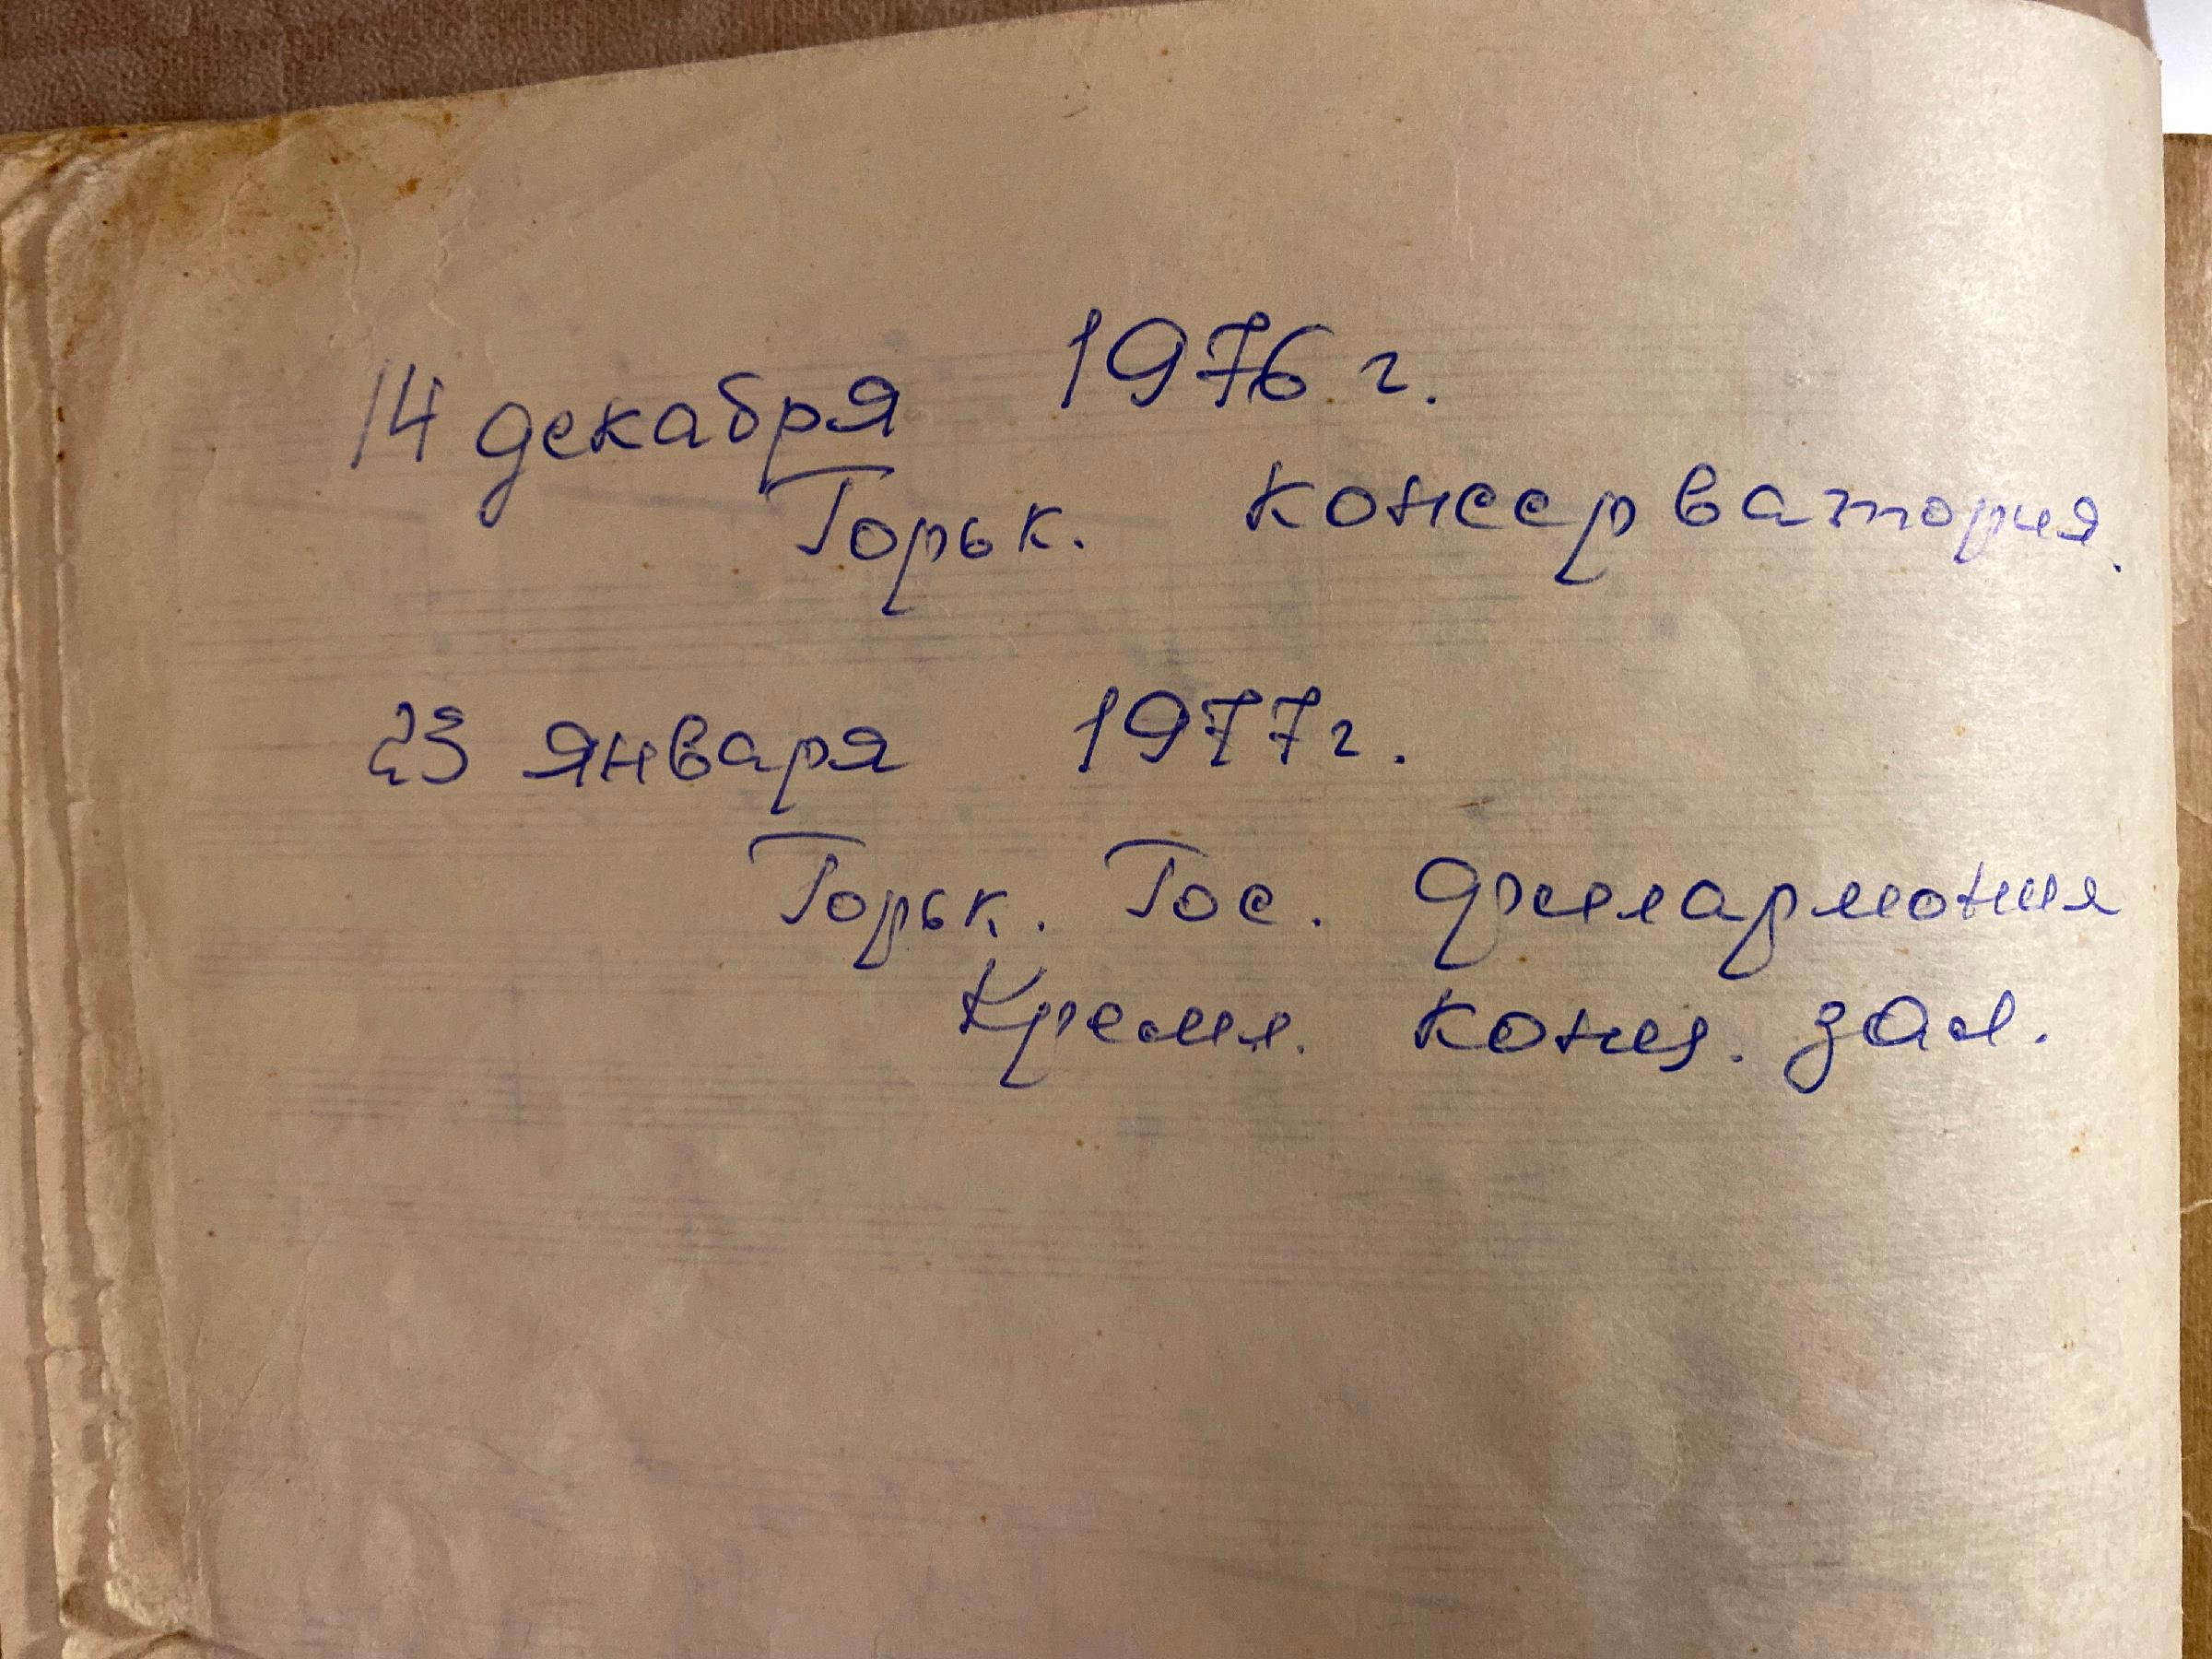 14 декабря 1976 г.
Горьк. консерватория.
23 января 1977 г.
Горьк. Гос. филармония
Кремл. конц. зал.